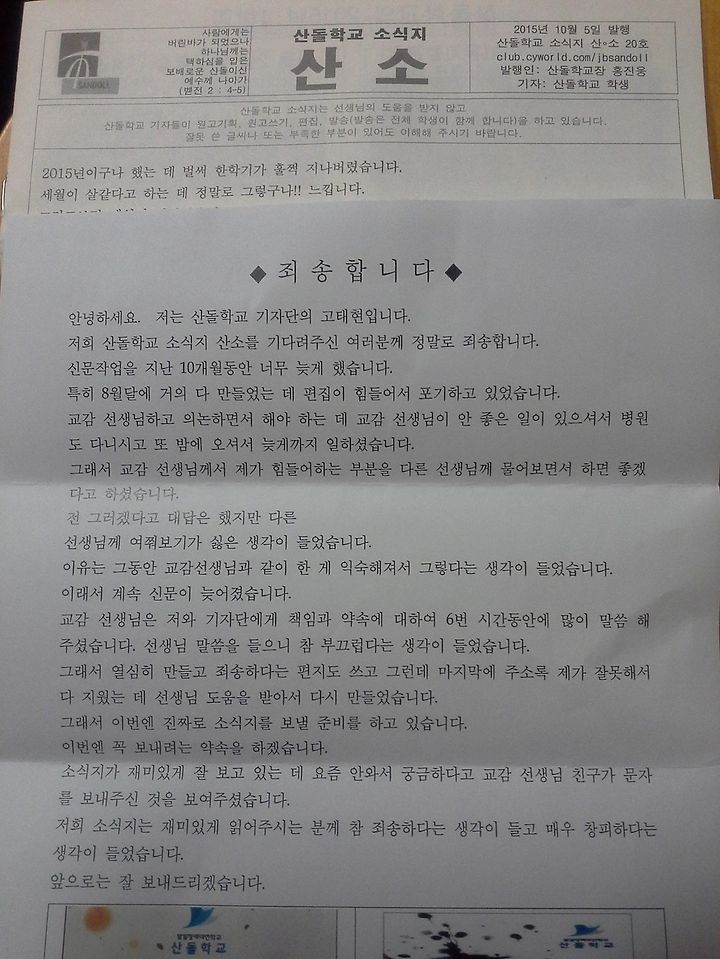 사람에게는
버린바가 되었으나
하나님께는
택하심을 입은
보배로운 산돌이신
예수께 나아가
(벧전 2 : 4-5)
SANDOLL
산돌학교 소식지
산 소
2015년 10월 5일 발행
산돌학교 소식지 산∘소 20호
club.cyworld.com/jbsandoll
발행인: 산돌학교장 홍진웅
기자: 산돌학교 학생
산돌학교 소식지는 선생님의 도움을 받지 않고
산돌학교 기자들이 원고기획, 원고쓰기, 편집, 발송(발송은 전체 학생이 함께 합니다)을 하고 있습니다.
잘못 쓴 글씨나 또는 부족한 부분이 있어도 이해해 주시기 바랍니다.
2015년이구나 했는 데 벌써 한학기가 훌쩍 지나버렸습니다.
세월이 살같다고 하는 데 정말로 그렇구나!! 느낍니다.
◆ 죄 송 합 니 다 ◆
안녕하세요. 저는 산돌학교 기자단의 고태현입니다.
저희 산돌학교 소식지 산소를 기다려주신 여러분께 정말로 죄송합니다.
신문작업을 지난 10개월동안 너무 늦게 했습니다.
특히 8월달에 거의 다 만들었는 데 편집이 힘들어서 포기하고 있었습니다.
교감 선생님하고 의논하면서 해야 하는 데 교감 선생님이 안 좋은 일이 있으셔서 병원
도 다니시고 또 밤에 오셔서 늦게까지 일하셨습니다.
그래서 교감 선생님께서 제가 힘들어하는 부분을 다른 선생님께 물어보면서 하면 좋겠
다고 하셨습니다.
전 그러겠다고 대답은 했지만 다른
선생님께 여쭤보기가 싫은 생각이 들었습니다.
이유는 그동안 교감선생님과 같이 한 게 익숙해져서 그렇다는 생각이 들었습니다.
이래서 계속 신문이 늦어졌습니다.
교감 선생님은 저와 기자단에게 책임과 약속에 대하여 6번 시간동안에 많이 말씀 해
주셨습니다. 선생님 말씀을 들으니 참 부끄럽다는 생각이 들었습니다.
그래서 열심히 만들고 죄송하다는 편지도 쓰고 그런데 마지막에 주소록 제가 잘못해서
다 지웠는 데 선생님 도움을 받아서 다시 만들었습니다.
그래서 이번엔 진짜로 소식지를 보낼 준비를 하고 있습니다.
이번엔 꼭 보내려는 약속을 하겠습니다.
소식지가 재미있게 잘 보고 있는 데 요즘 안와서 궁금하다고 교감 선생님 친구가 문자
를 보내주신 것을 보여주셨습니다.
저희 소식지는 재미있게 읽어주시는 분께 참 죄송하다는 생각이 들고 매우 창피하다는
생각이 들었습니다.
앞으로는 잘 보내드리겠습니다.
산돌학교
산돌학교